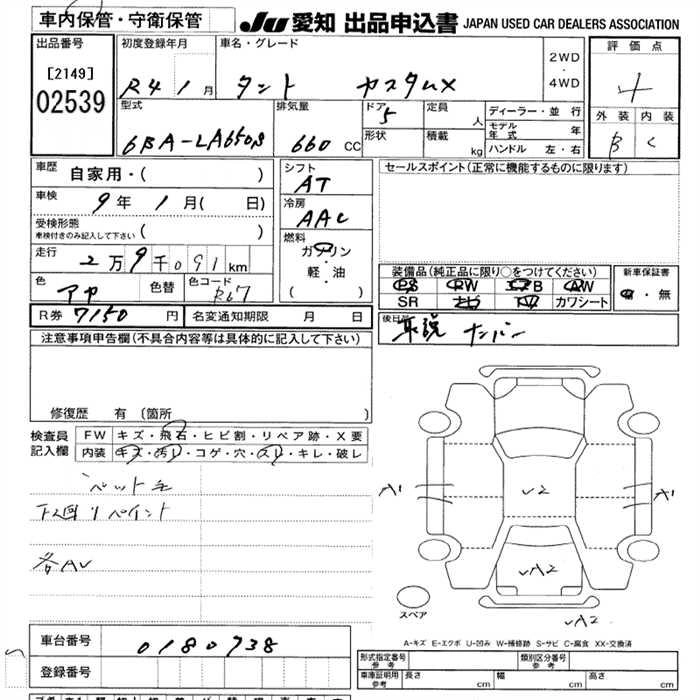 車内保管・守衛保管
JU 愛知 出品申込書 JAPAN USED CAR DEALERS ASSOCIATION
出品番号 初度登録年月 車名・グレード 2WD ・ 4WD 評価点
[2149] R4 1月 タント カスタムX 4
02539
型式 排気量 ドア 5 定員 人 ディーラー・並行 外装 内装
6BA-LA650S 660 CC 形状 積載 kg モデル年式 年 B C
ハンドル 左・右
車歴 自家用・( ) シフト AT セールスポイント(正常に機能するものに限ります)
車検 9年 1月( 日) 冷房 AAC
受検形態 車検付きのみ記入して下さい ( )
燃料 ガソリン・軽・油 ( )
走行 2万9千091km
色 アオ 色替 色コード B67
装備品(純正品に限り○をつけてください) 新車保証書
PS PW エアB AW 有・無
SR ナビ TV カワシート
R券 7150円 名変通知期限 月 日 後日品 取説 ナンバー
注意事項申告欄(不具合内容等は具体的に記入して下さい)
修復歴 有(箇所 )
検査員記入欄 FW キズ・飛石・ヒビ割・リペア跡・X要
内装 キズ・汚れ・コゲ・穴・スレ・キレ・破レ
ペット毛
下回りペイント
各AU
A1 U2 A1
UA2
スペア UA2
A-キズ E-エクボ U-凹み W-補修跡 S-サビ C-腐食 XX-交換済
車台番号 0180738 形式指定番号 参考 類別区分番号 参考
登録番号 車庫証明用 参考 長さ cm 幅 cm 高さ cm